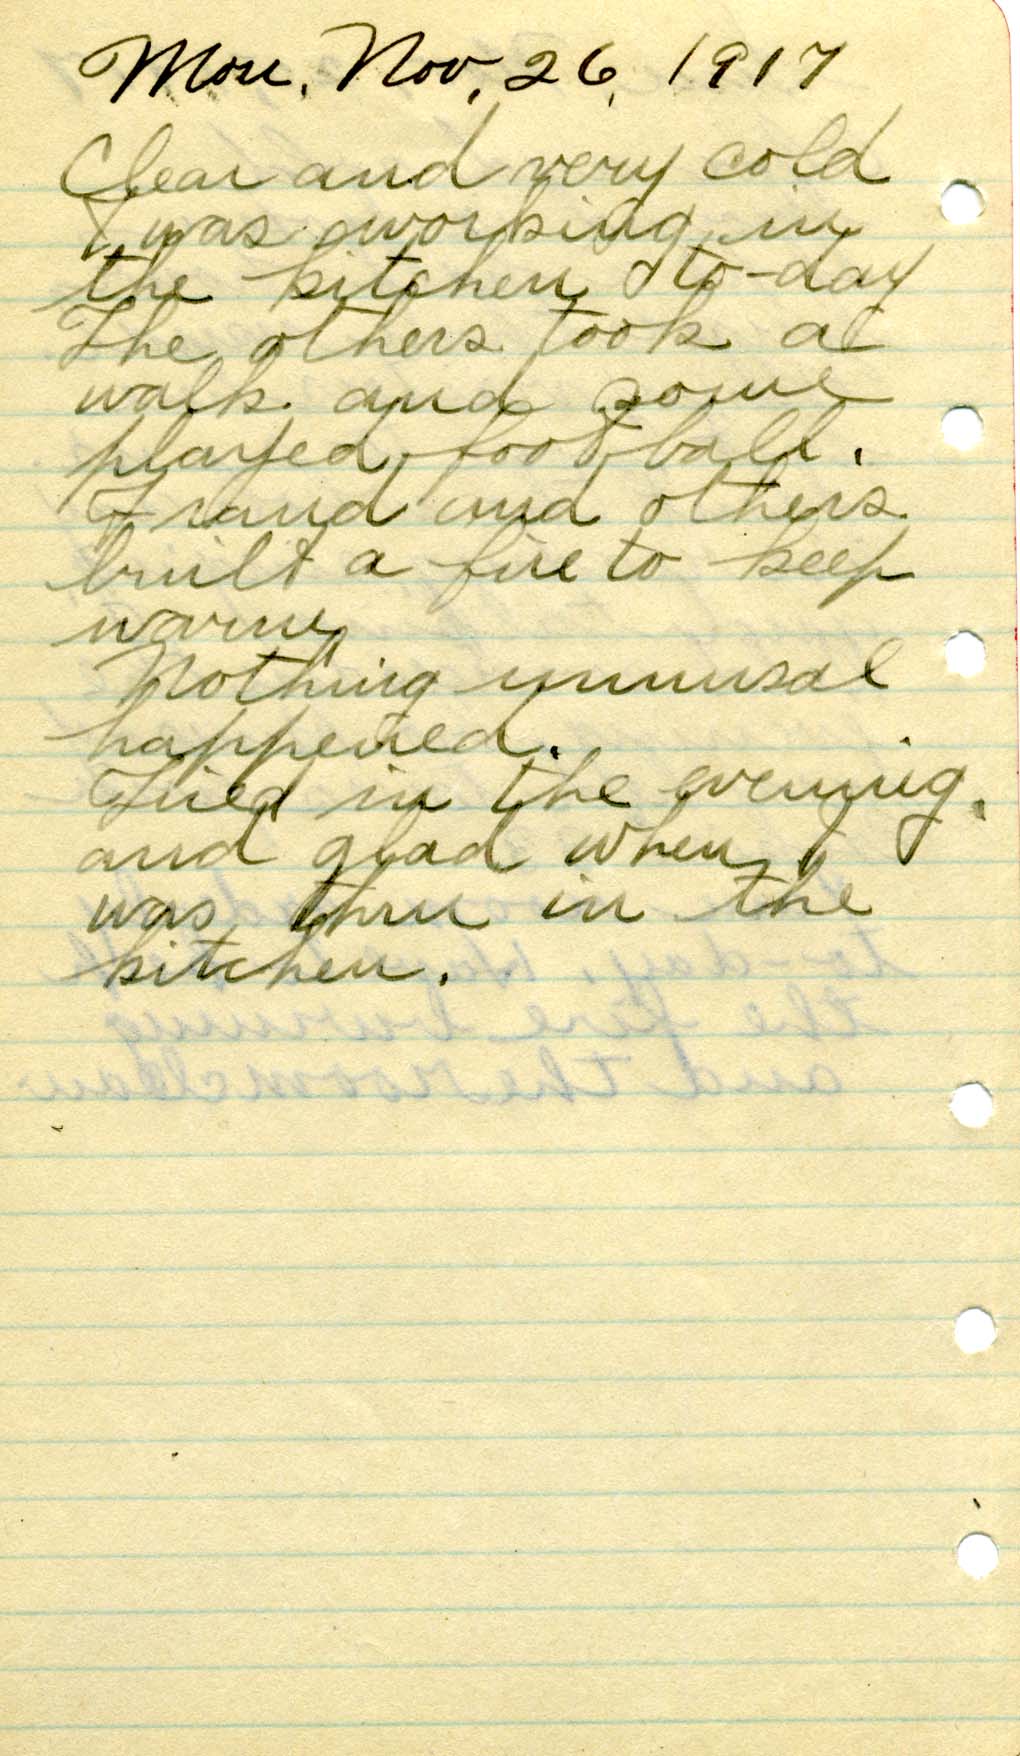 Mon. Nov. 26, 1917
Clear and very cold
I was working in
the kitchen to-day
The others took a
walk and some
played foot ball.
and others
built a fire to keep
warm
Nothing unnusal
happened.
Tired in the evening.
and glad when I
was thru in the
kitchen.
to-day.
the fire burning
and the room clean